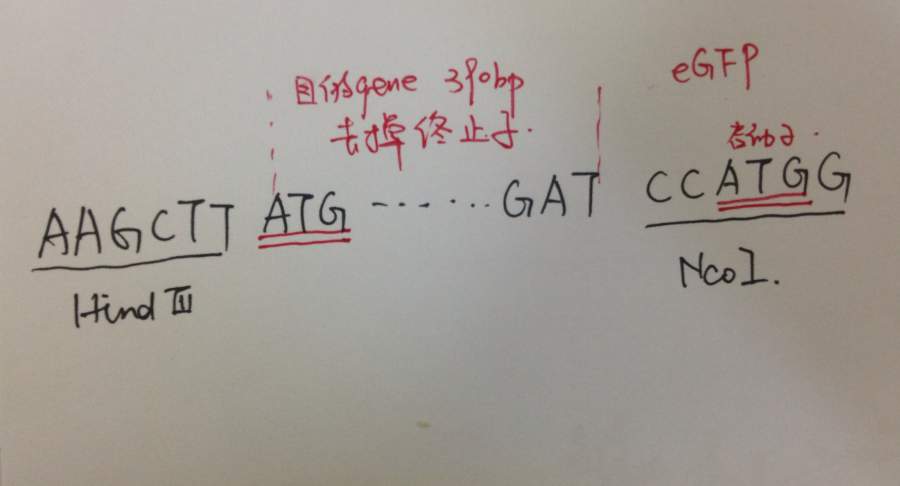 目的gene 390bp
去掉终止子.
eGFP
启动子.
AAGCTT ATG ------ GAT CCATGG
Hind III
NcoI.